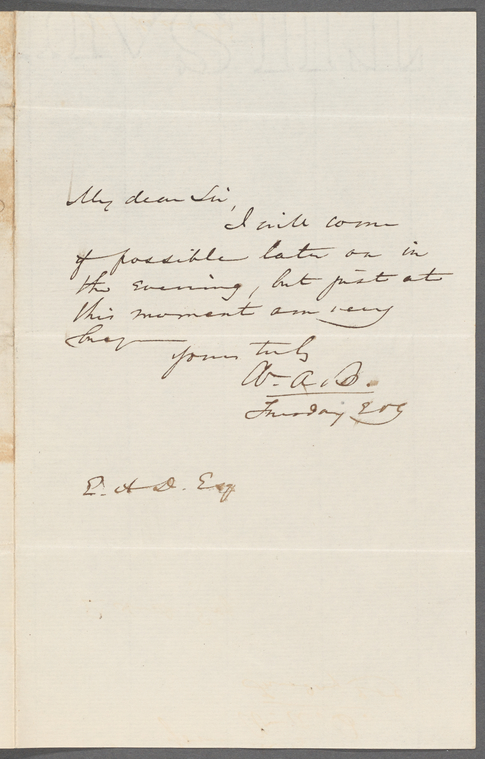 My dear Sir,
I will come
if possible later on in
the evening, but just at
this moment am very
busy
yours truly
Wm. A. B.
Tuesday Evg
E. A. D. Esq